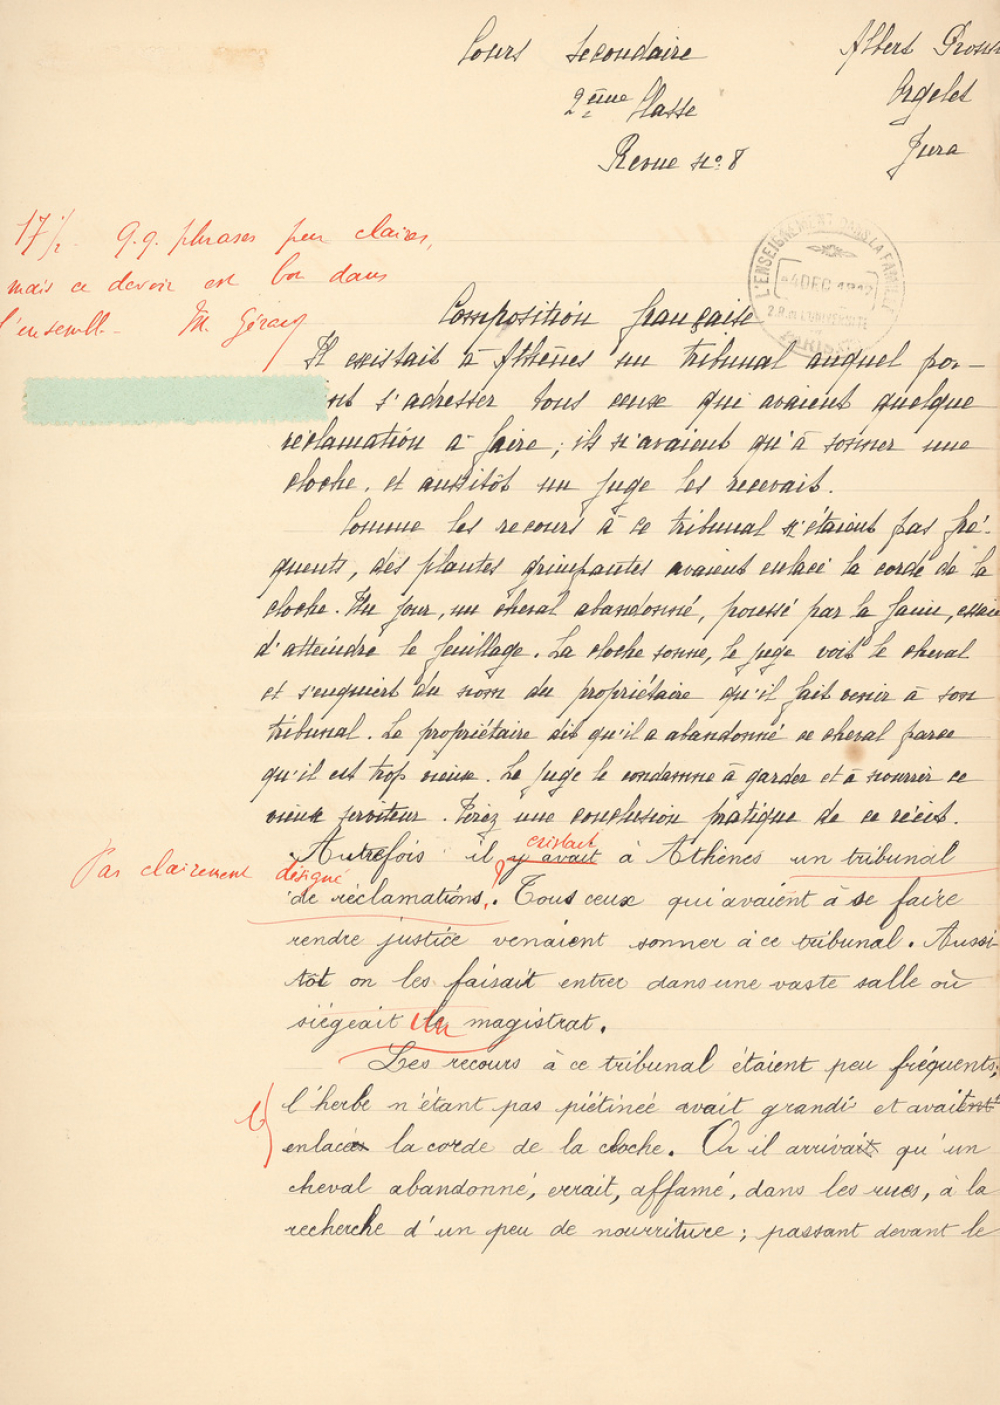 Cours Secondaire
Albert
2ème Classe
Orgelet
Revue No. 8
Jura
17 1/2 q.q. phrases peu claires,
mais ce devoir est bon dans
l'ensemble. M.
L'ENSEIGNEMENT DANS LA FAMILLE
4 DEC
PARIS
Composition française
Il existait à Athènes un tribunal auquel pou-
s'adresser tous ceux qui avaient quelque
réclamation à faire ; ils n'avaient qu'à sonner une
cloche, et aussitôt un juge les recevait.
Comme les recours à ce tribunal n'étaient pas fré-
quents, des plantes grimpantes avaient enlacé la corde de la
cloche. Un jour, un cheval abandonné, poussé par la faim, essaie
d'atteindre le feuillage. La cloche sonne, le juge voit le cheval
et s'enquiert du nom du propriétaire qu'il fait venir à son
tribunal. Le propriétaire dit qu'il a abandonné ce cheval parce
qu'il est trop vieux. Le juge le condamne à garder et à nourrir ce
vieux serviteur. Tirez une conclusion pratique de ce récit.
existait
Autrefois il y avait à Athènes un tribunal
Pas clairement désigné
de réclamations. Tous ceux qui avaient à se faire
rendre justice venaient sonner à ce tribunal. Aussi-
tôt on les faisait entrer dans une vaste salle où
siégeait un magistrat.
Les recours à ce tribunal étaient peu fréquents;
l'herbe n'étant pas piétinée avait grandi et avait
enlacé la corde de la cloche. Or il arriva qu'un
cheval abandonné, errait, affamé, dans les rues, à la
recherche d'un peu de nourriture ; passant devant le